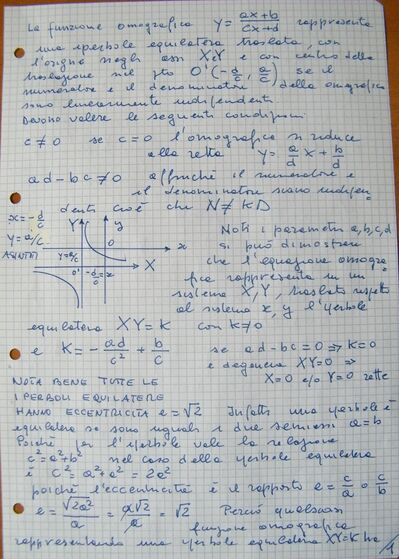 La funzione omografica y = ax+b / cx+d rappresenta
una iperbole equilatera traslata, con
l'origine negli assi X,Y e con centro della
traslazione nel pto O'(-d/c, a/c) se il
numeratore e il denominatore della omografica
sono linearmente indipendenti
Devono valere le seguenti condizioni
c ≠ 0 se c = 0 l'omografica si riduce
alla retta y = a/d x + b/d
ad - bc ≠ 0 affinché il numeratore e
il denominatore siano indipen-
denti cioè che N ≠ KD
x = -d/c
y = a/c
ASINTOTI
Y y
O x
y = a/c
O' -d/c = x X
Noti i parametri a, b, c, d
si può dimostrare
che l'equazione omogra
fica rappresenta in un
sistema X, Y, traslato rispetto
al sistema x, y l'iperbole
equilatera XY = K con K ≠ 0
e K = - ad/c² + b/c se ad - bc = 0 ⇒ K = 0
e degenera XY = 0 ⇒
X = 0 e/o Y = 0 rette
NOTA BENE TUTTE LE
IPERBOLI EQUILATERE
HANNO ECCENTRICITÀ e = √2 Infatti una iperbole è
equilatera se sono uguali i due semiassi a = b
Poiché per l'iperbole vale la relazione
c² = a² + b² nel caso della iperbole equilatera
è c² = a² + a² = 2a²
poiché l'eccentricità è il rapporto e = c/a o c/b
e = √2a² / a = a√2 / a = √2 Perciò qualsiasi
funzione omografica
rappresentando una iperbole equilatera XY = K ha
1